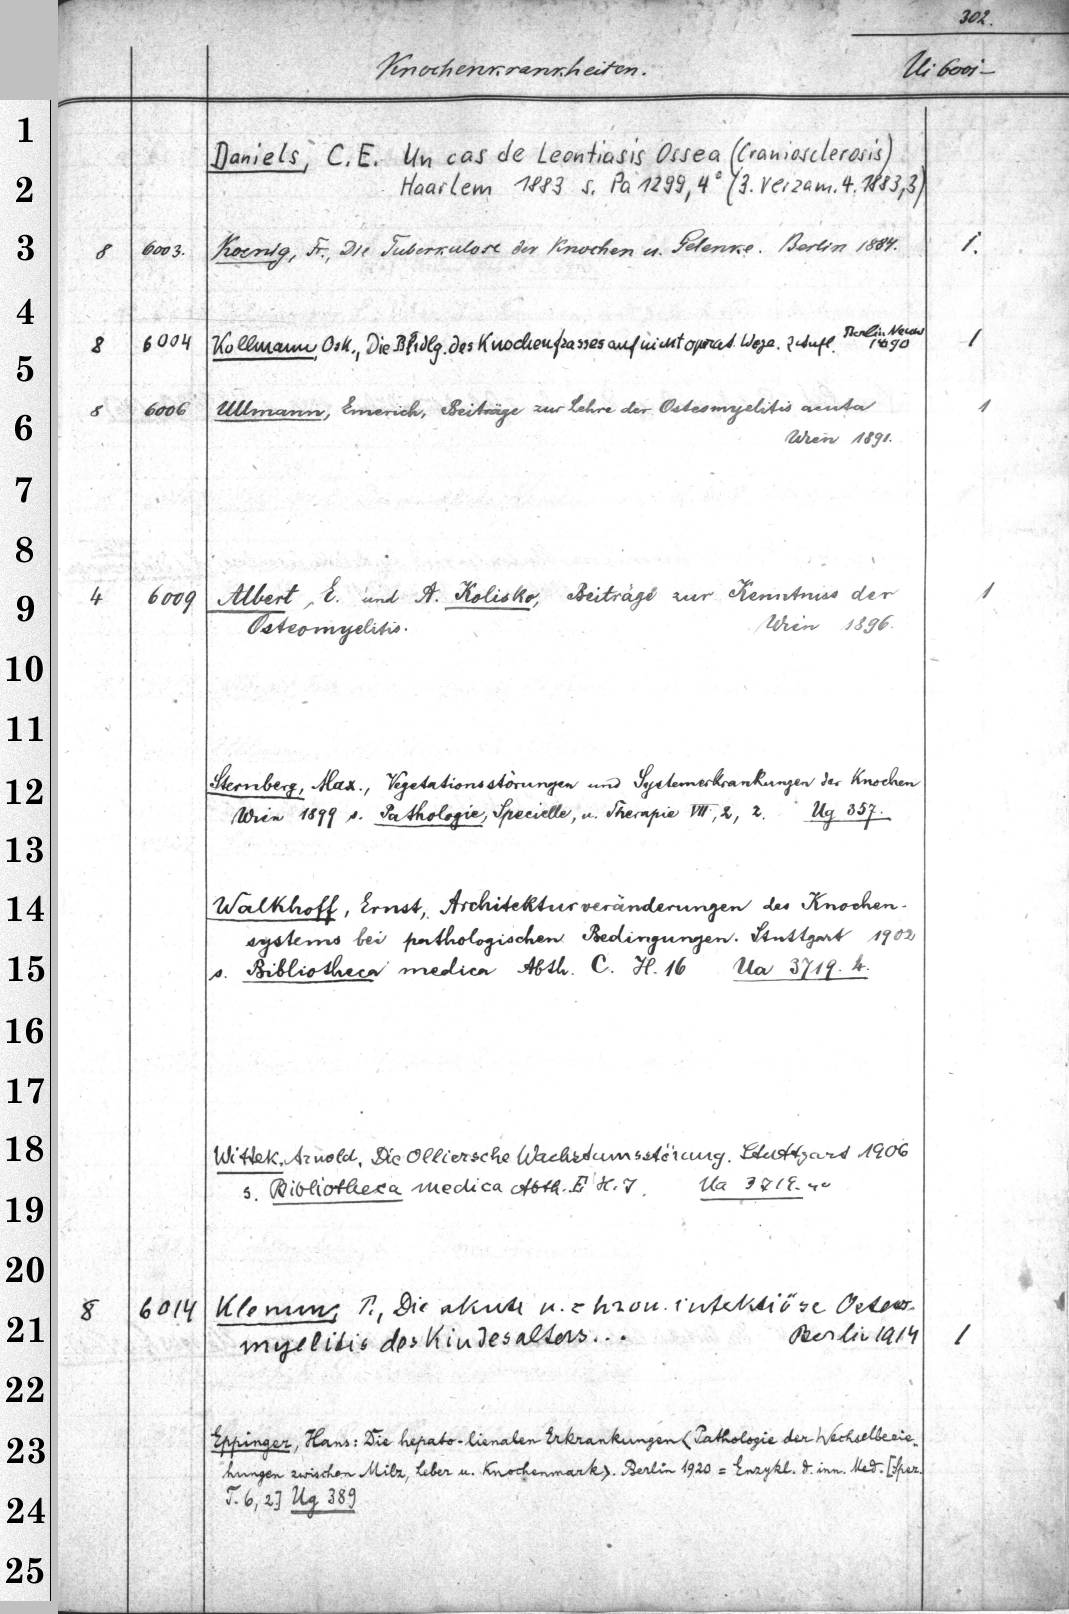 302.
Knochenkrankheiten. Ui 6001-
1
Daniels, C.E. Un cas de Leontiasis Ossea (Craniosclerosis)
2
Haarlem 1883 s. Pa 1299, 4° (3. Verzam. 4. 1883, 3)
3
8 6003. Koenig, Fr., Die Tuberkulose der Knochen u. Gelenke. Berlin 1884. 1.
4
8 6004 Kollmann, Osk., Die Bhdlg. des Knochenfrasses auf nicht operat. Wege. 2 Aufl. Berlin Neuw 1890 1
5
8 6006 Ullmann, Emerich, Beiträge zur Lehre der Osteomyelitis acuta 1
6
Wien 1891.
7
8
4 6009 Albert, E. und A. Kolisko, Beiträge zur Kenntniss der 1
9
Osteomyelitis. Wien 1896.
10
11
Sternberg, Max., Vegetationsstörungen und Systemerkrankungen der Knochen
12
Wien 1899 s. Pathologie, Specielle, u. Therapie VII, 2, 2. Ug 357.
13
14
Walkhoff, Ernst, Architekturveränderungen des Knochen-
systems bei pathologischen Bedingungen. Stuttgart 1902
15
s. Bibliotheca medica Abth. C. H. 16 Ua 3719. 4.
16
17
18
Wittek, Arnold, Die Olliersche Wachstumsstörung. Stuttgart 1906
s. Bibliotheca medica Abth. E H. 7. Ua 3719. 4°
19
20
8 6014 Klemm, P., Die akute u. chron. infektiöse Osteo-
21
myelitis des Kindesalters... Berlin 1914 1
22
23
Eppinger, Hans: Die hepato-lienalen Erkrankungen (Pathologie der Wechselbezie-
hungen zwischen Milz, Leber u. Knochenmark). Berlin 1920 = Enzykl. d. inn. Med. [Spez.
24
T. 6, 2] Ug 389
25